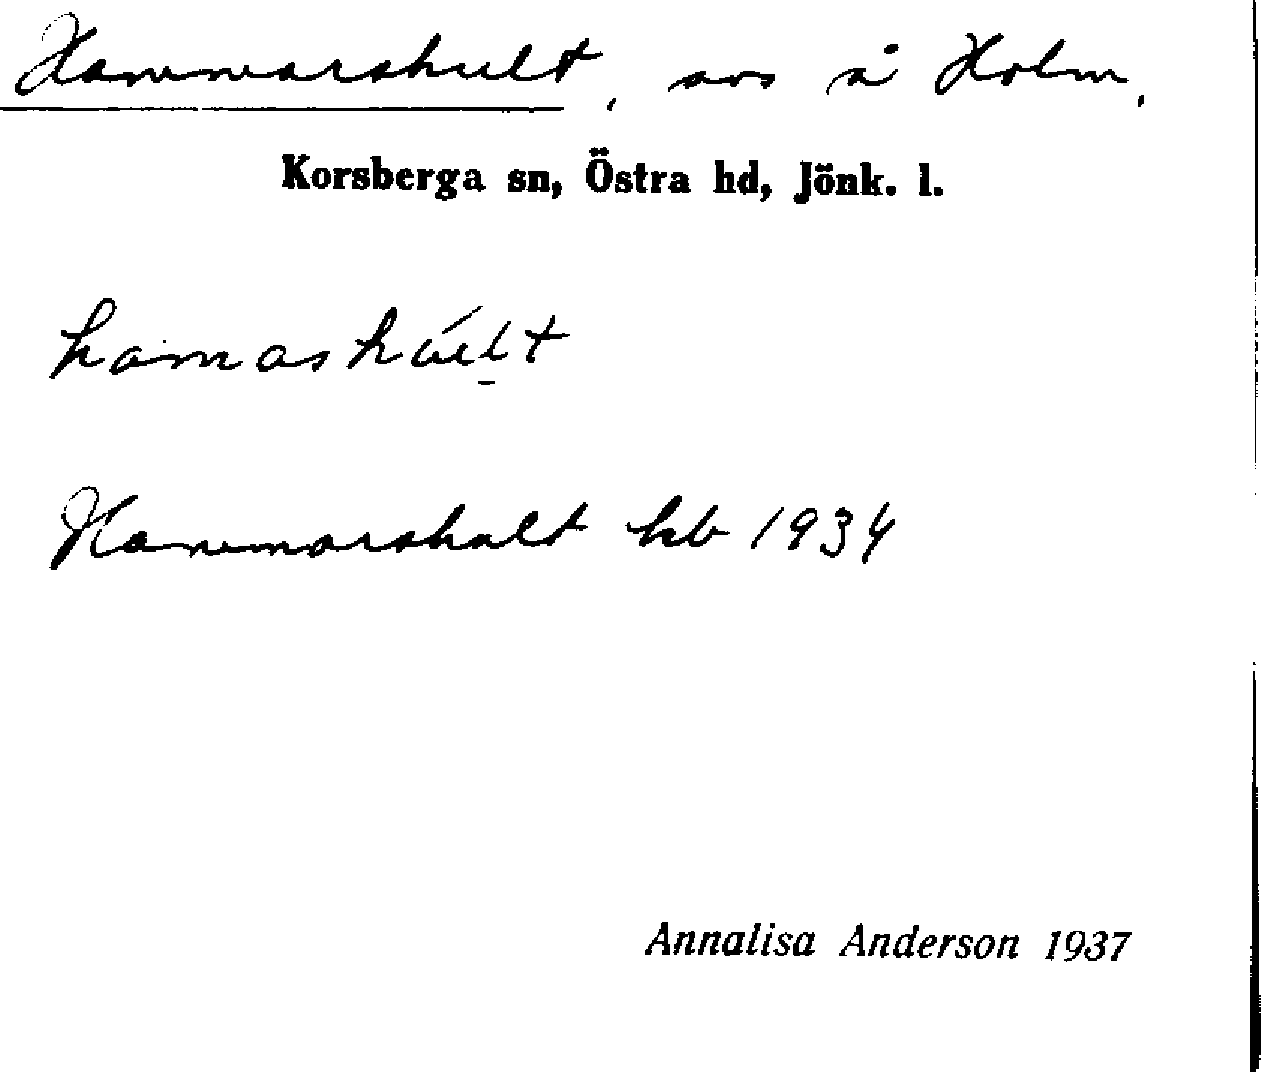 Hammarshult, avs å Holm.
Korsberga sn, Östra hd, Jönk. l.
hamashult
Hammarshult kb 1934
Annalisa Anderson 1937